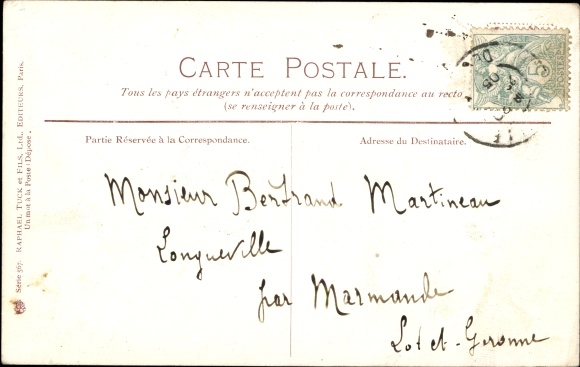 CARTE POSTALE.
Tous les pays étrangers n'acceptent pas la correspondance au recto
(se renseigner à la poste).
Partie Réservée à la Correspondance.
Adresse du Destinataire.
Monsieur Bertrand Martineau
Longueville
par Marmande
Lot et-Garonne
Série 967. RAPHAEL TUCK et FILS, Ltd., EDITEURS, Paris.
Un mot à la Poste (Déposé).